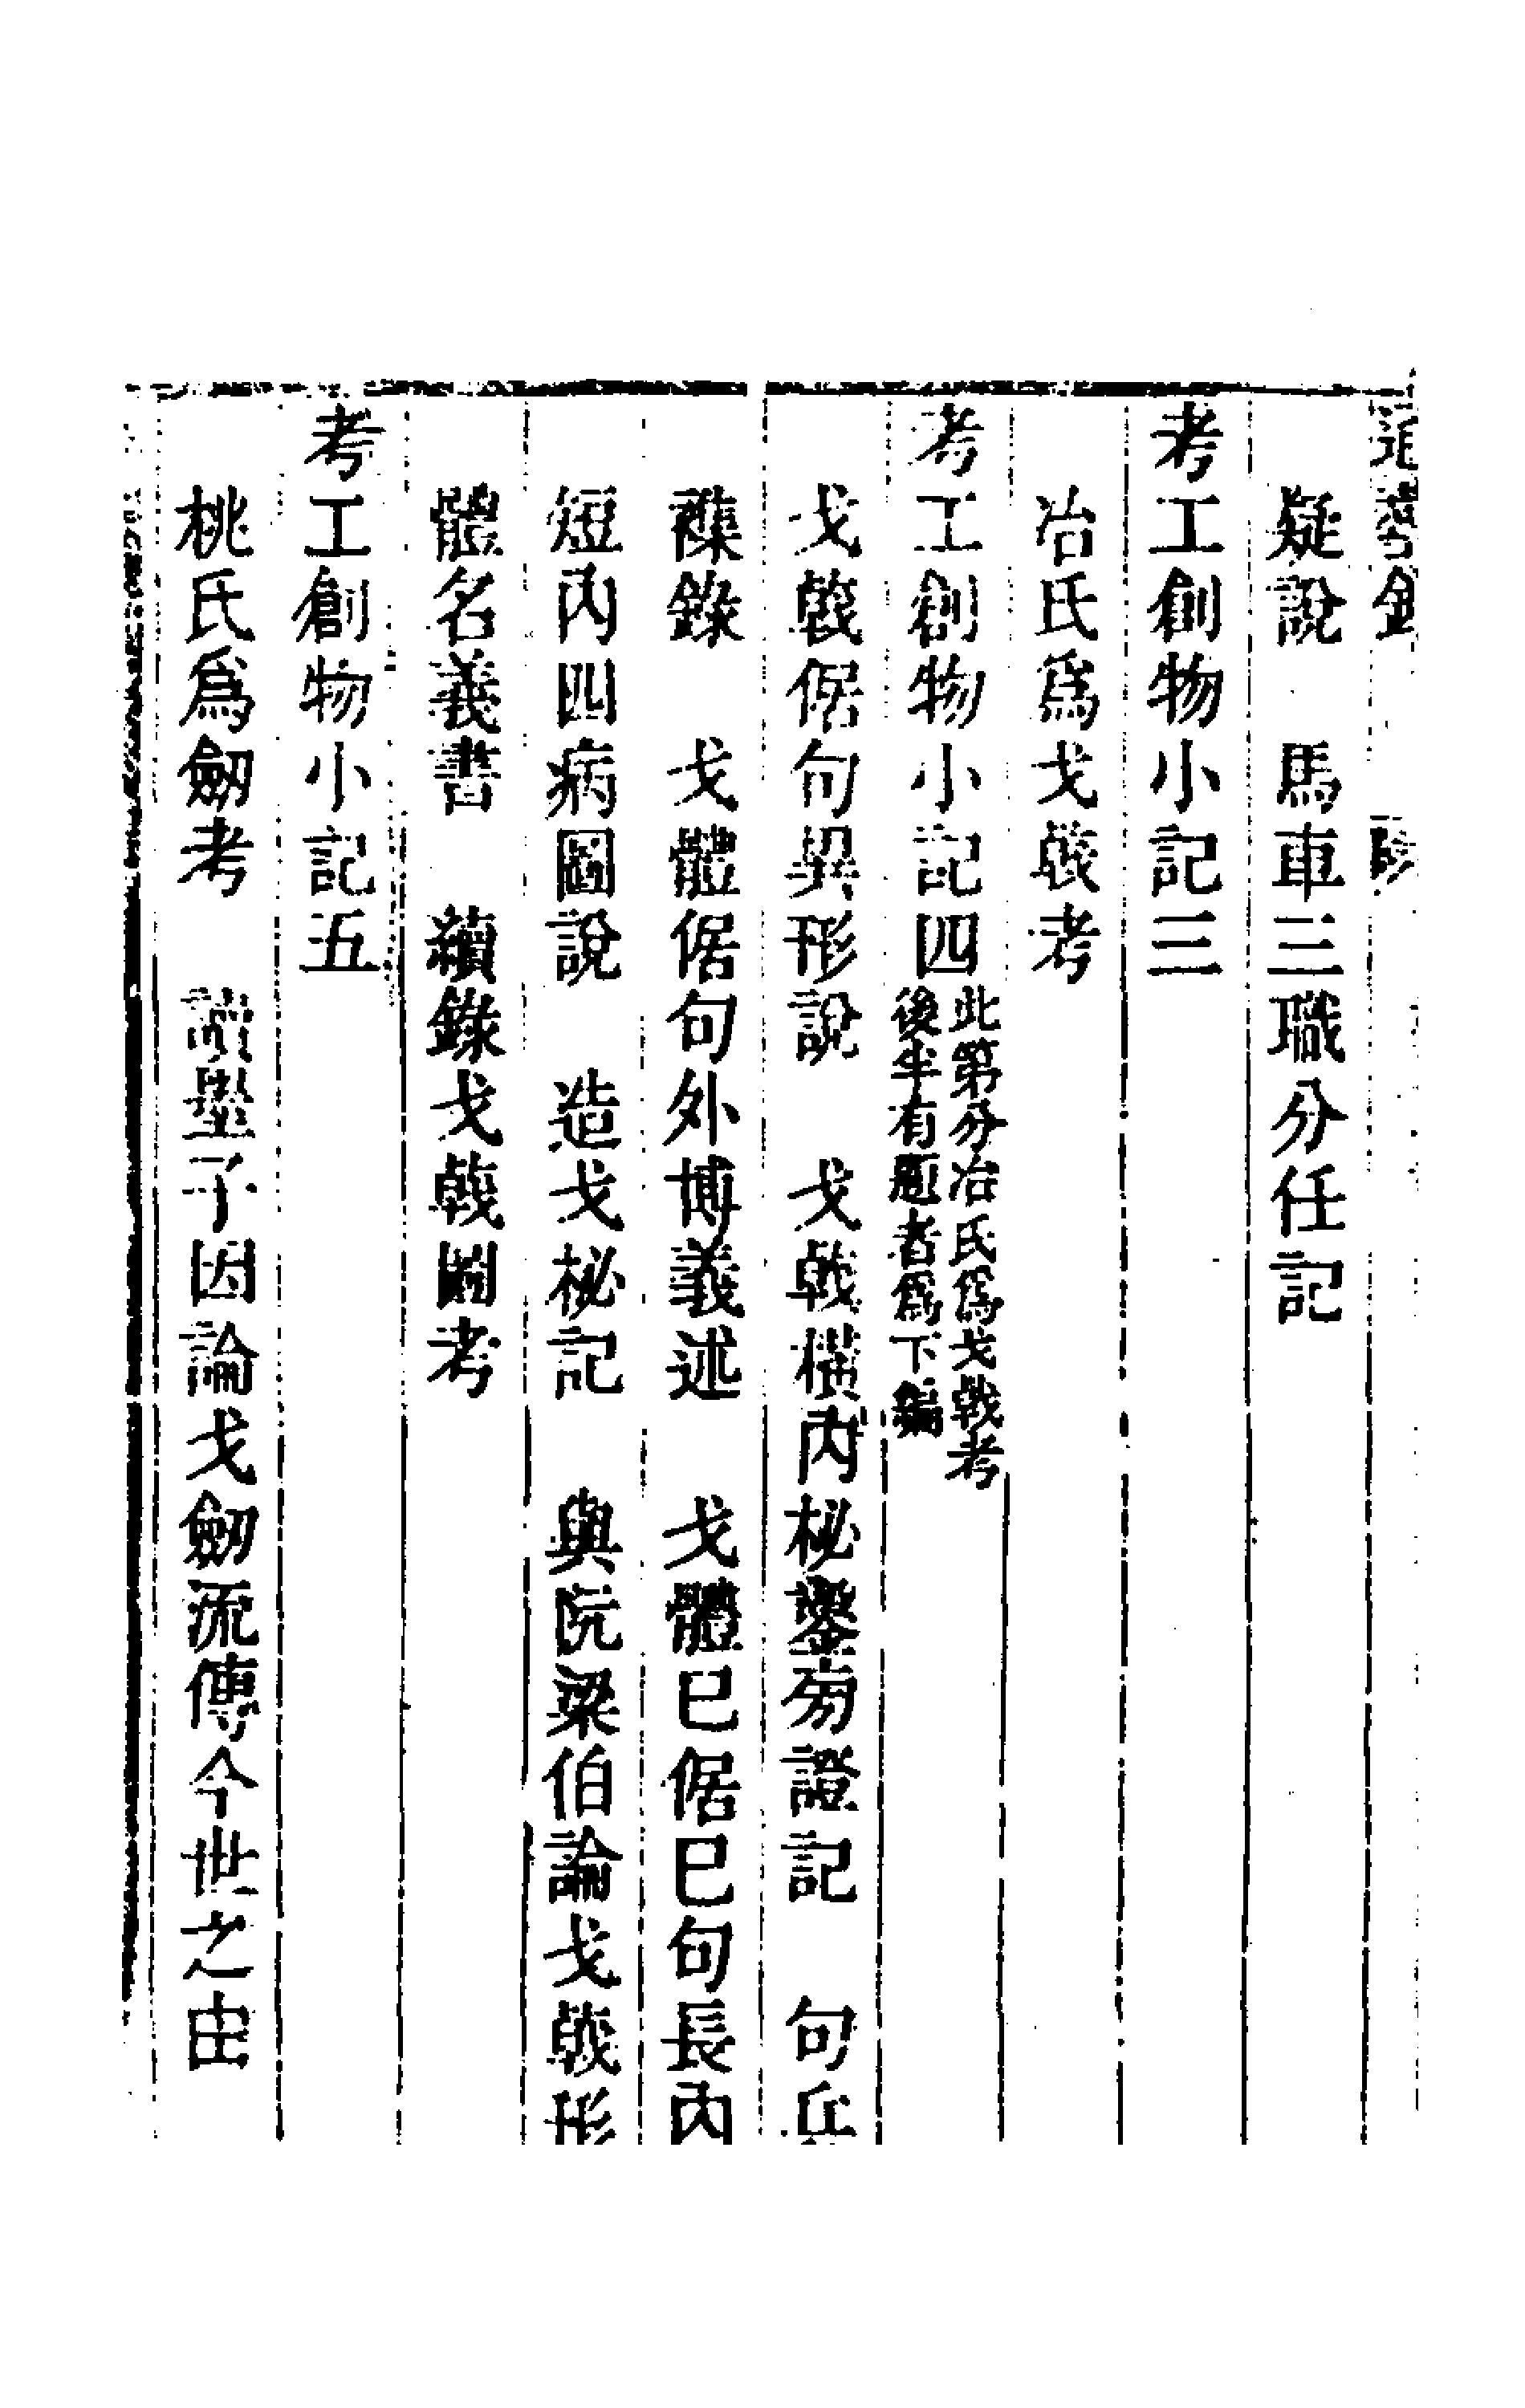 通藝錄
疑說　馬車三職分任記
考工創物小記三
冶氏爲戈戟考
考工創物小記四
此第分冶氏爲戈戟考
後半有題者爲下編
戈戟倨句異形說　戈戟橫內柲鑒旁證記　句兵
襍錄　戈體倨句外博義述　戈體已倨已句長內
短內四病圖說　造戈柲記　與阮梁伯論戈戟形
體名義書　續錄戈戟圖考
考工創物小記五
桃氏爲劒考　讀墨子因論戈劒流傳今世之由